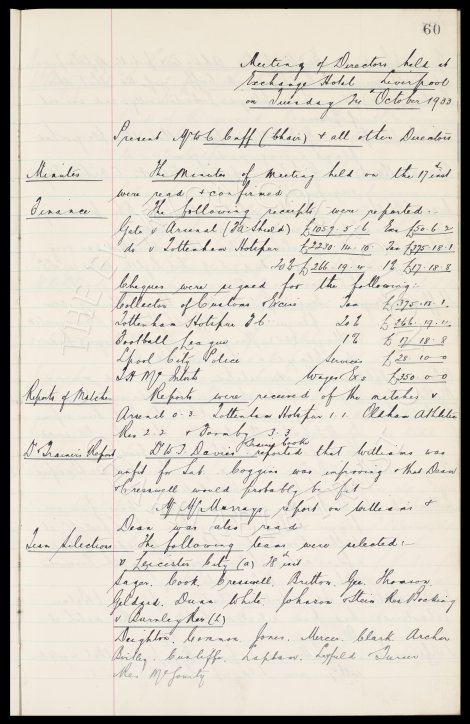 60
Meeting of Directors held at
Exchange Hotel Liverpool
on Tuesday October 1933
Present Mr W.C. Cuff (Chair) & all other Directors
Minutes The Minutes of Meeting held on the 17th inst
were read & confirmed
Finance The following receipts were reported:-
Gate v Arsenal (FA Shield) £1059.5.6 Tax £50.6.2
do v Tottenham Hotspur £2230.14.10 Tax £375.18.1
20% £266.19.11 1% £17.18.8
Cheques were signed for the following:
Collector of Customs & Excise Tax £375.18.1
Tottenham Hotspur F C 20% £266.19.11
Football League 1% £17.18.8
L'pool City Police Services £28.10.0
T.H. McIntosh Wages & Exs £250.0.0
Reports of Matches Reports were received of the matches v
Arsenal 0.3 Tottenham Hotspur 1.1 Oldham Athletic
Res 2.2 & Formby 3.3
& Trainer Cooke
Dr & Trainer's Report Dr W.J. Davies reported that Williams was
unfit for Sat. Coggins was improving & that Dean
& Cresswell would probably be fit
Mr McMurrays report on Williams &
Dean was also read
Team Selections The following teams were selected:-
v Leicester City (a) 28th inst
Sagar. Cook. Cresswell. Britton. Gee. Thomson.
Geldard. Dunn. White. Johnson & Stein Res
v Burnley Res (h)
Deighton. Common. Jones. Mercer. Clark Archer
Birtley. Cunliffe. Lapham. Leyfield Turner
Res McGourty